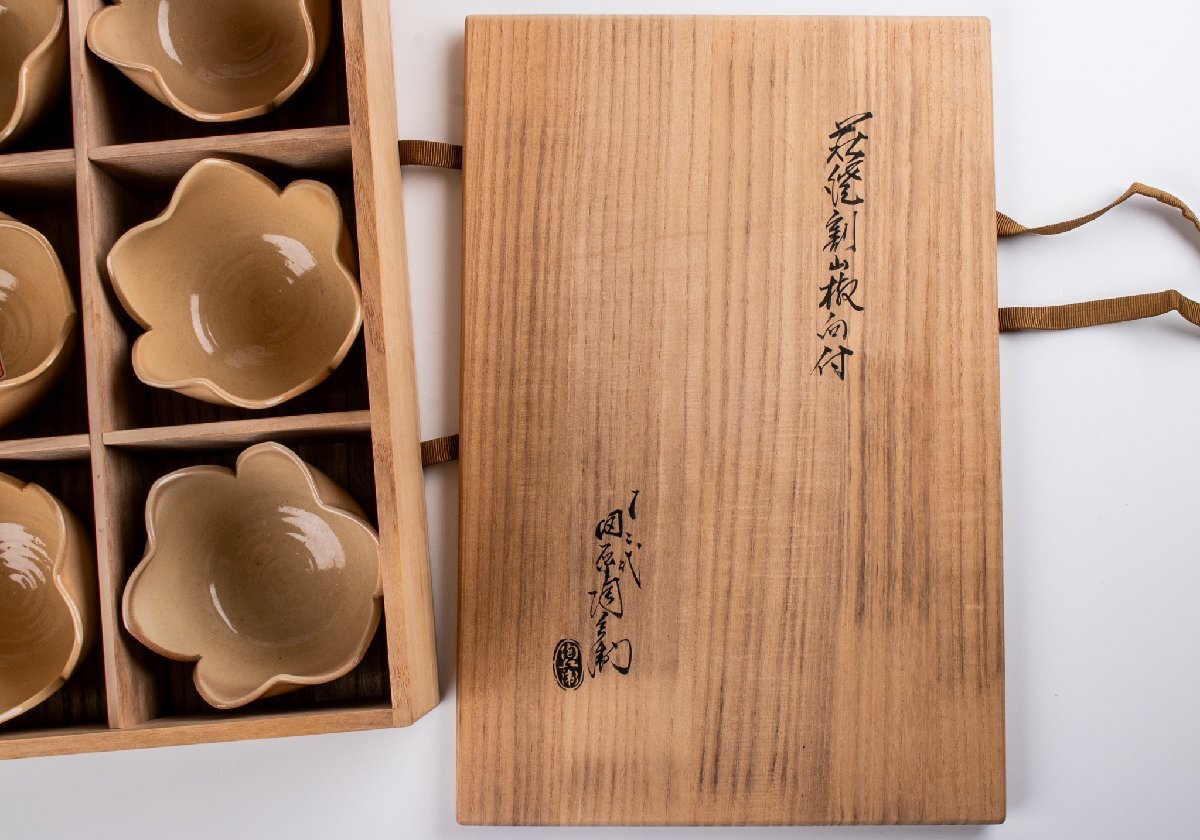 萩焼割山椒向付
十二代
田原陶兵衛
陶兵衛